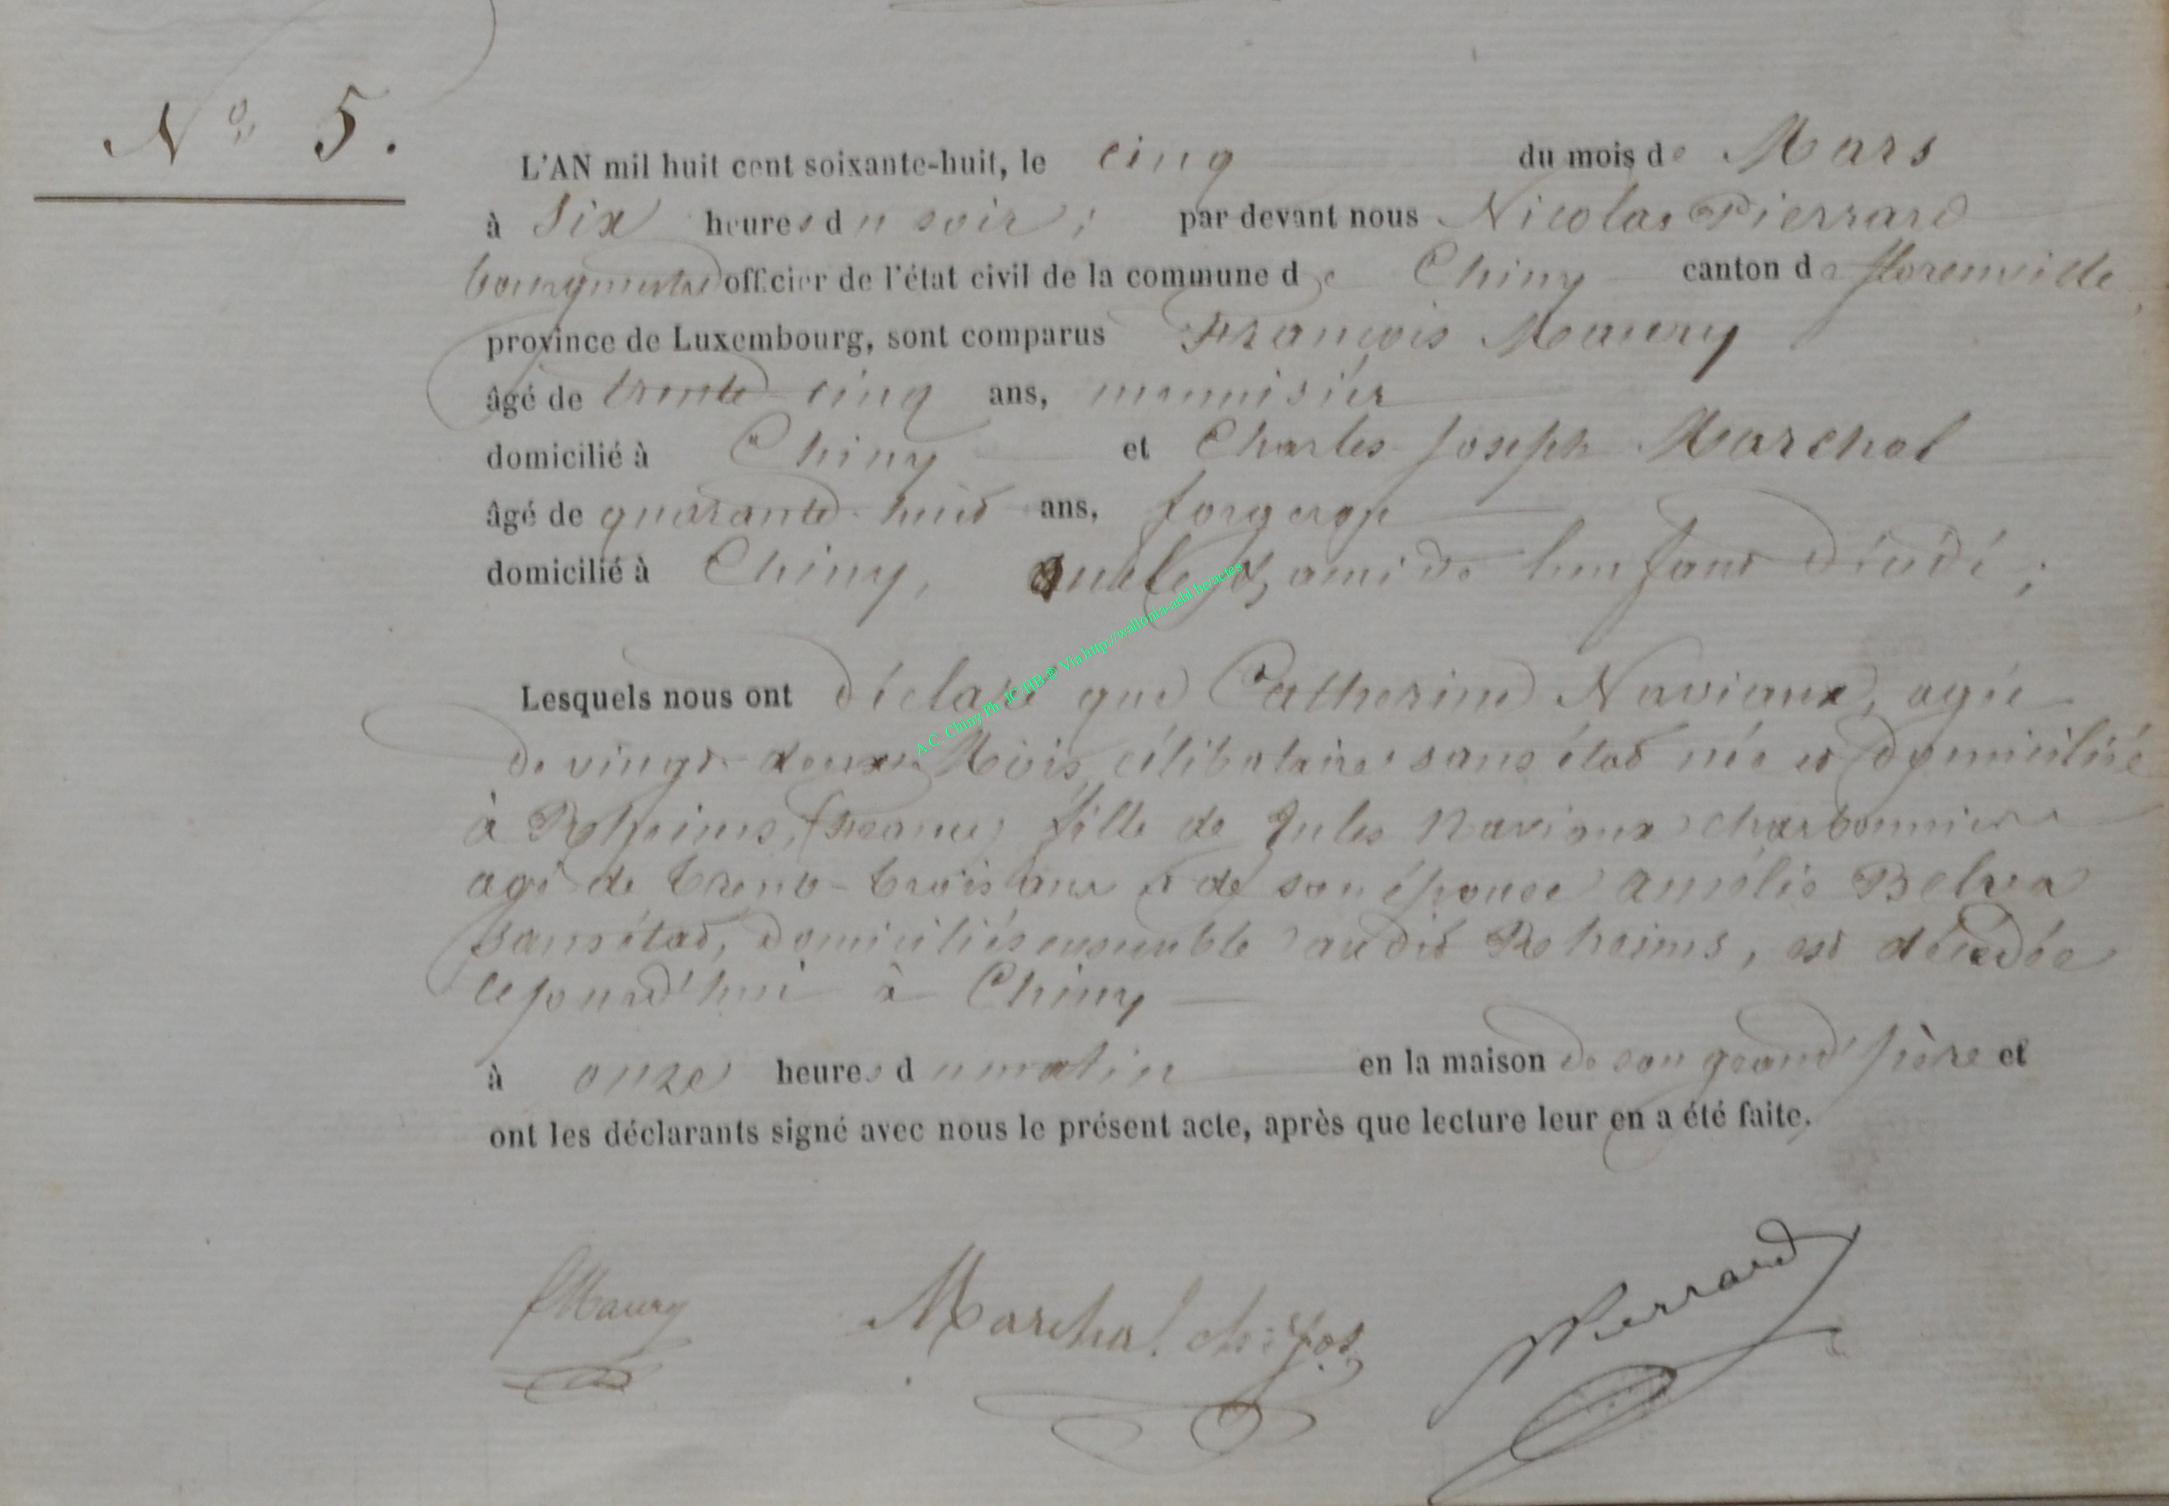 N° 5.
L'AN mil huit cent soixante-huit, le cinq du mois de Mars
à Six heures du soir ; par devant nous Nicolas Pierrard
bourgmestre officier de l'état civil de la commune de Chiny canton de florenville
province de Luxembourg, sont comparus François Maury
âgé de trente cinq ans, menuisier
domicilié à Chiny et Charles Joseph Marchal
âgé de quarante-huit ans, forgeron
domicilié à Chiny, oncle et ami de l'enfant décédé ;
Lesquels nous ont déclaré que Catherine Naviaux, agée
de vingt-deux Mois, célibataire sans état née et domiciliée
à Rheims, (france) fille de Jules Naviaux charbonnier
agé de trente-trois ans et de son épouse Amélie Belva
sans état, domiciliés ensemble audit Reheims, est décédée
cejourd'hui à Chiny
à onze heures du matin en la maison de son grand'père et
ont les déclarants signé avec nous le présent acte, après que lecture leur en a été faite.
fMaury Marchal ch: Jos Pierrard
A.C. Chiny Ph. JC HB © Via http://wallonia-asbl.be/actes